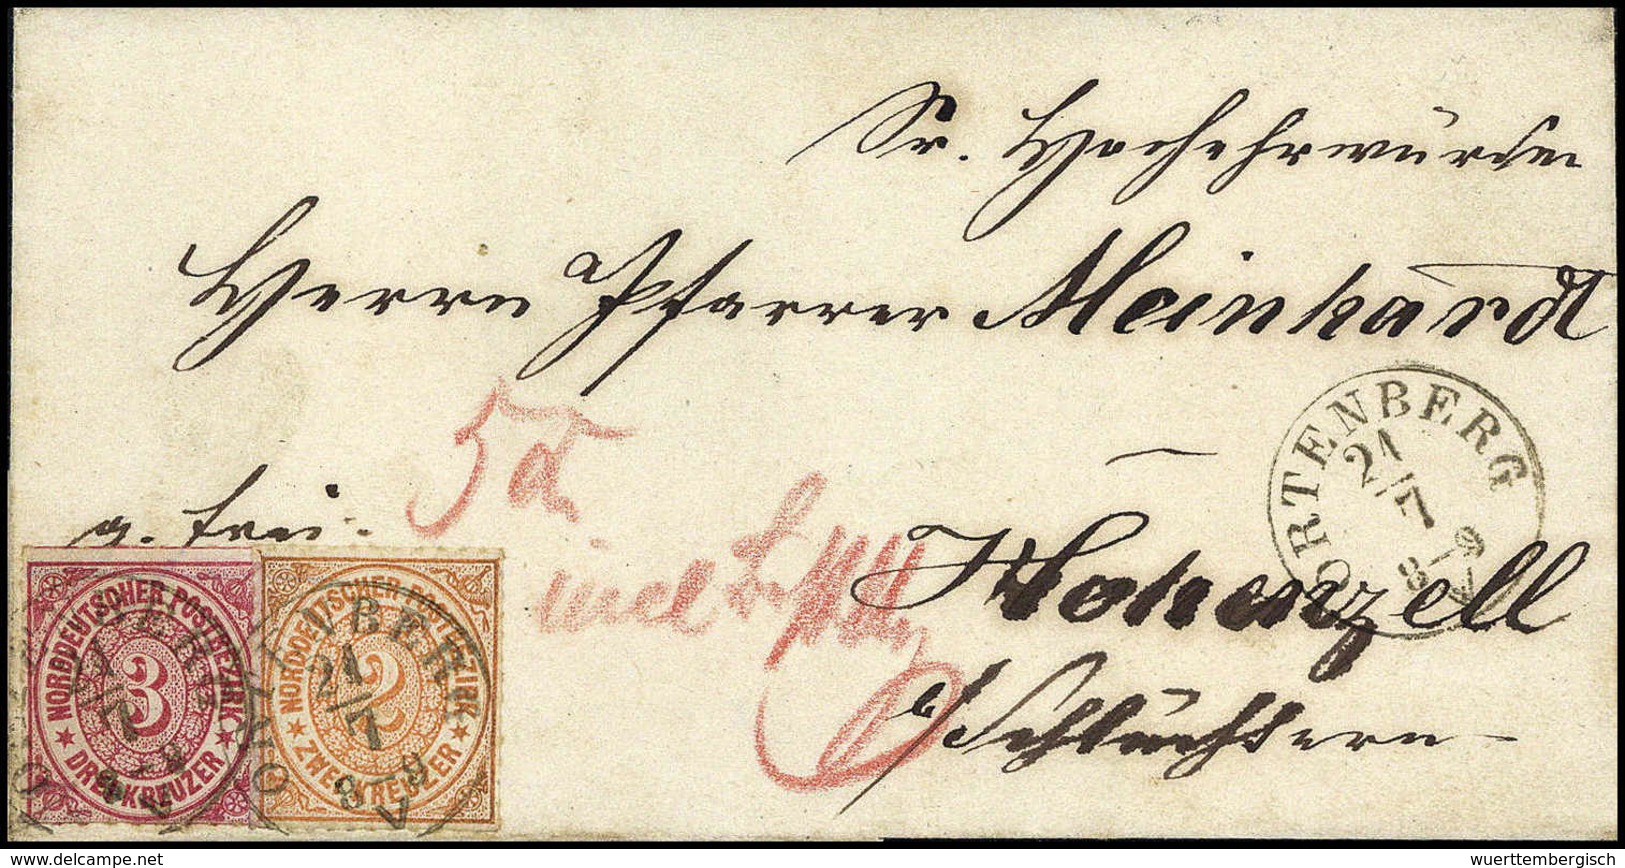 Sr. Hochehrwürden
Herrn Pfarrer Meinhardt
ORTENBERG
21/7
8-9
V
frei.
Hohenzell
Schlüchtern
NORDDEUTSCHER POSTBEZIRK
3
DREI KREUZER
NORDDEUTSCHER POSTBEZIRK
2
ZWEI KREUZER
21/7
8-9
V
© www.delcampe.net
wuerttembergisch